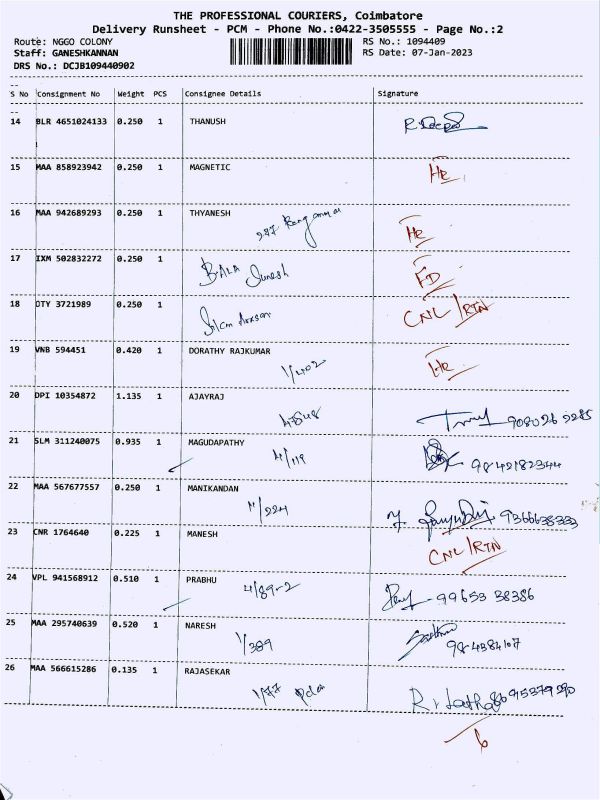 THE PROFESSIONAL COURIERS, Coimbatore
Delivery Runsheet - PCM - Phone No.:0422-3505555 - Page No.:2
Route: NGGO COLONY RS No.: 1094409
Staff: GANESHKANNAN RS Date: 07-Jan-2023
DRS No.: DCJB109440902
S No Consignment No Weight PCS Consignee Details Signature
14 BLR 4651024133 0.250 1 THANUSH
15 MAA 858923942 0.250 1 MAGNETIC
16 MAA 942689293 0.250 1 THYANESH
17 IXM 502832272 0.250 1 BALA FD
18 OTY 3721989 0.250 1 CNL/RTN
19 VNB 594451 0.420 1 DORATHY RAJKUMAR
1/402
20 DPI 10354872 1.135 1 AJAYRAJ
21 SLM 311240075 0.935 1 MAGUDAPATHY
4/119 9842182344
22 MAA 567677557 0.250 1 MANIKANDAN
9366638333
23 CNR 1764640 0.225 1 MANESH
CNL/RTN
24 VPL 941568912 0.510 1 PRABHU
4/89-2 99653 38386
25 MAA 295740639 0.520 1 NARESH
1/389
26 MAA 566615286 0.135 1 RAJASEKAR
1/77
6